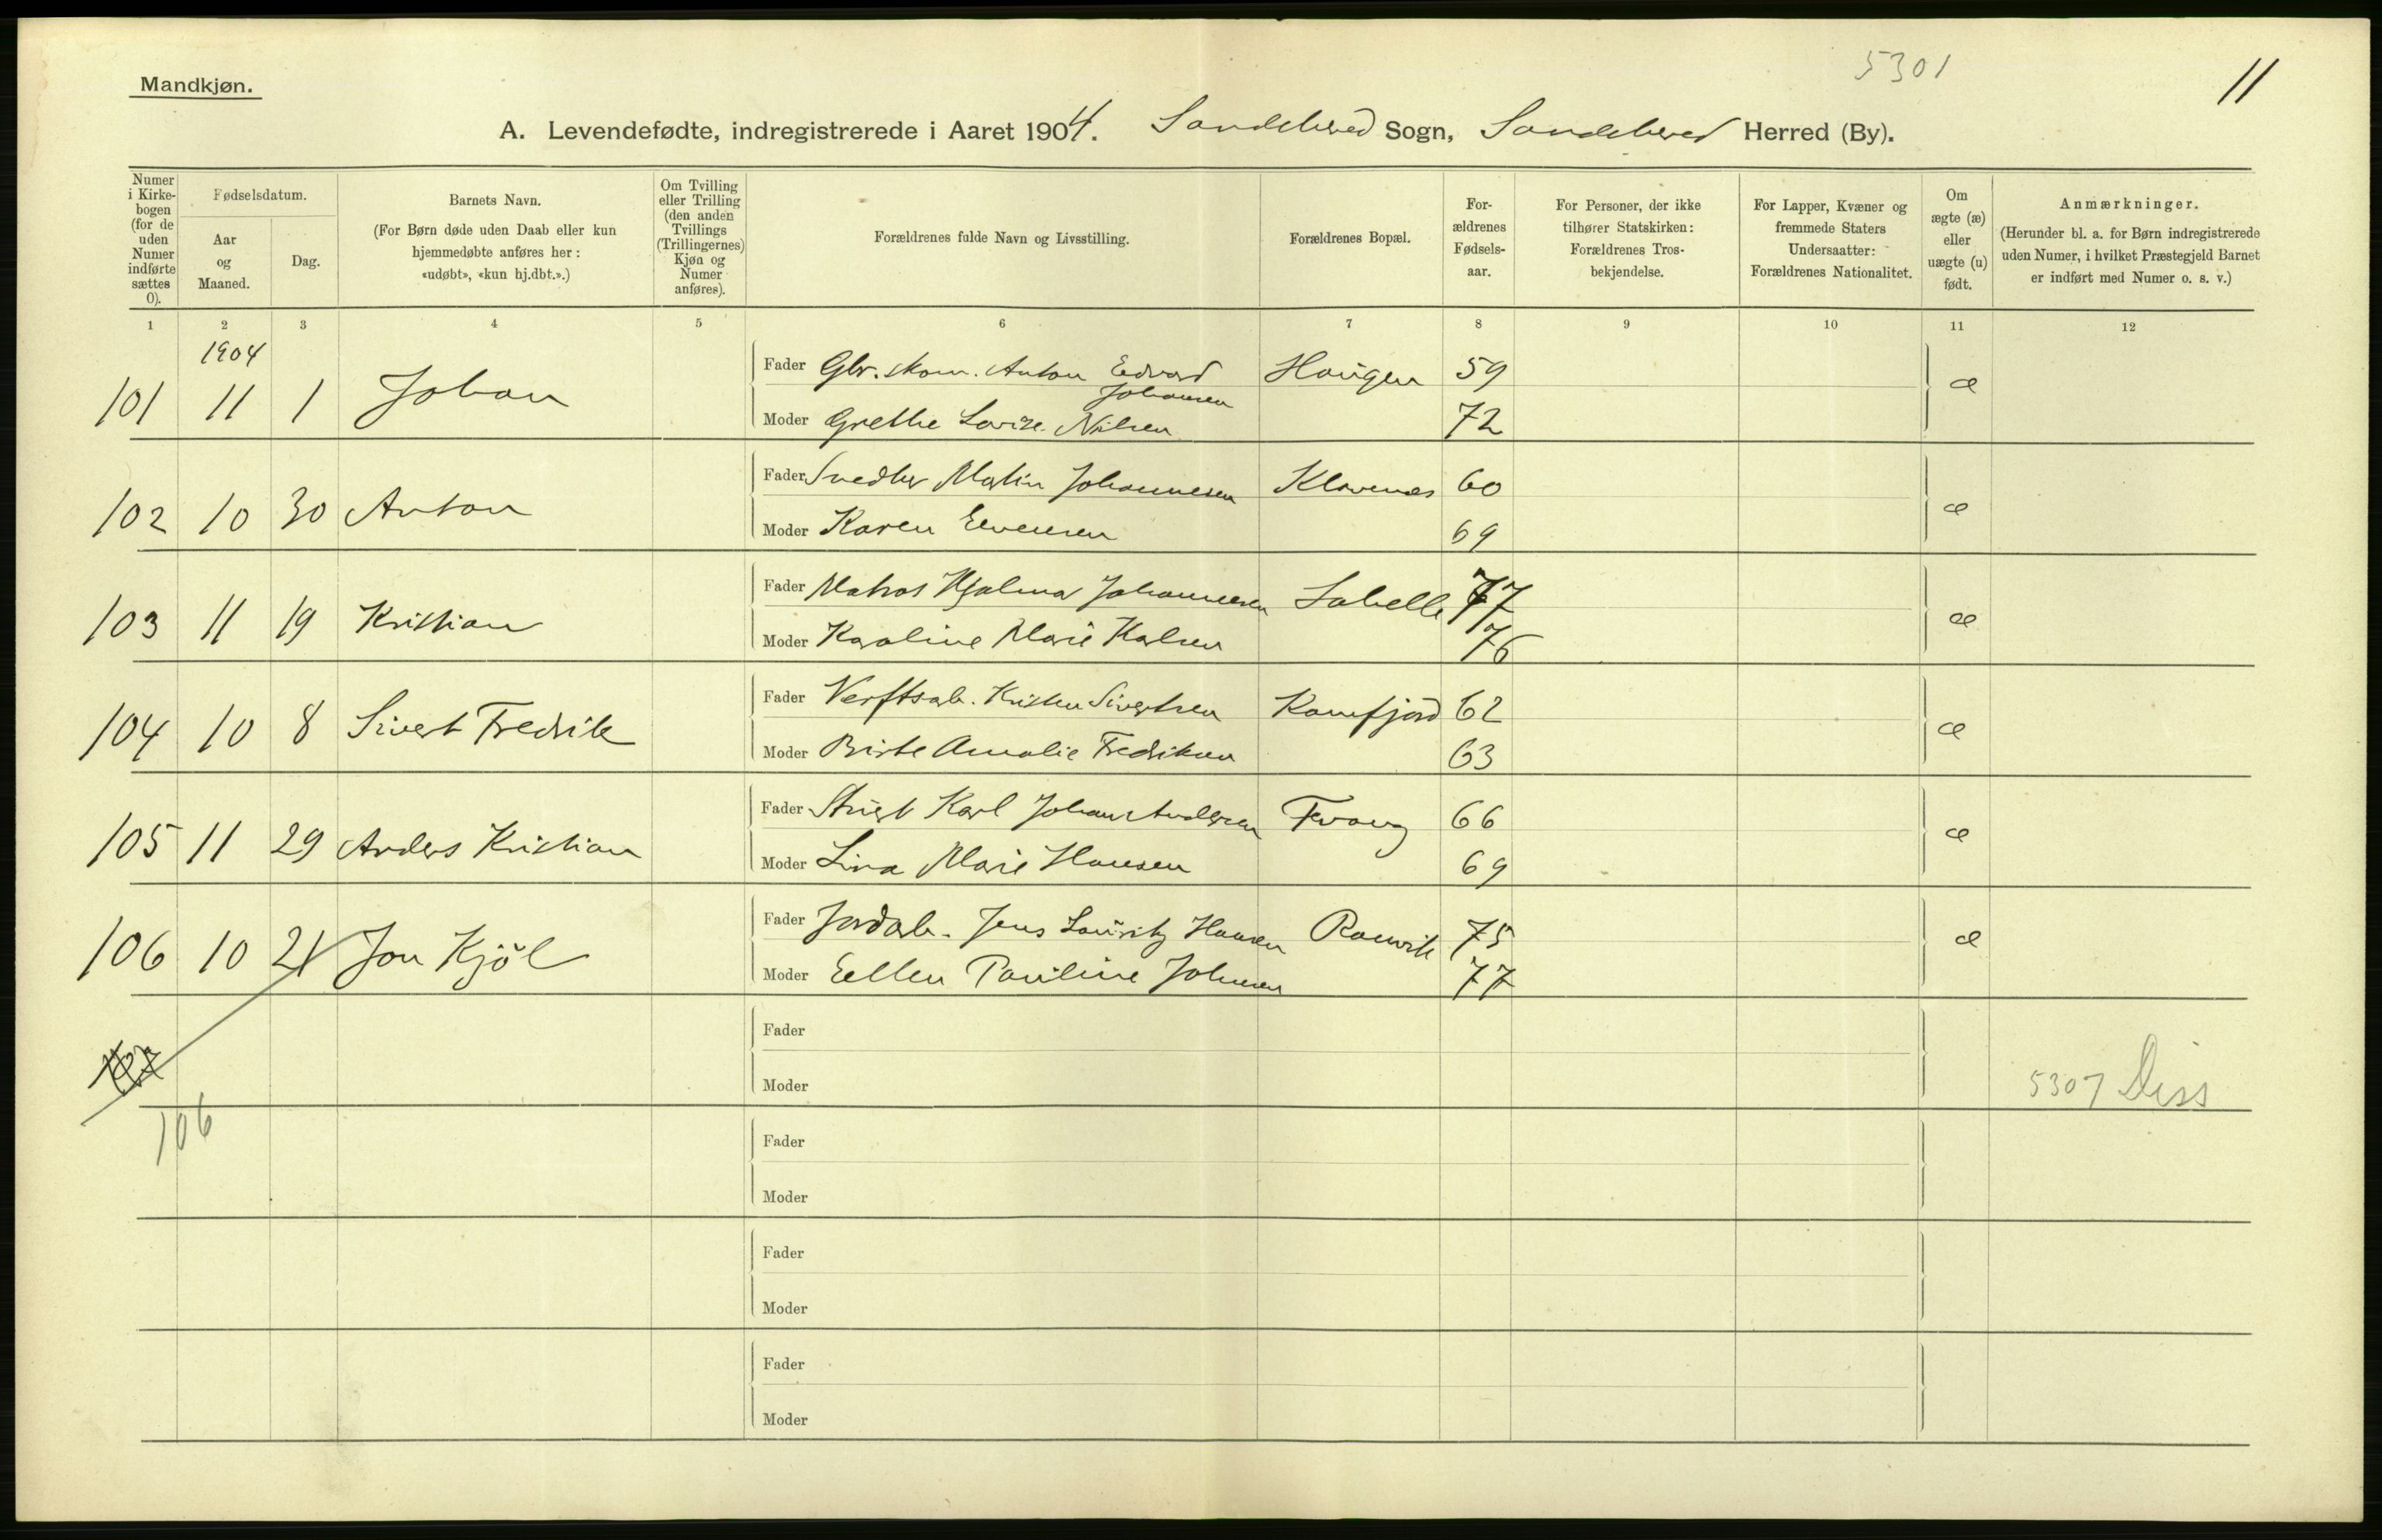 5301
11
Mandkjøn.
A. Levendefødte, indregistrerede i Aaret 1904. Sandeherred Sogn, Sandeherred Herred (By).
Numer i Kirkebogen (for de uden Numer indførte sættes 0).
Fødselsdatum.
Aar og Maaned.
Dag.
Barnets Navn.
(For Børn døde uden Daab eller kun hjemmedøbte anføres her: «udøbt», «kun hj.dbt.».)
Om Tvilling eller Trilling (den anden Tvillings (Trillingernes) Kjøn og Numer anføres).
Forældrenes fulde Navn og Livsstilling.
Forældrenes Bopæl.
Forældrenes Fødselsaar.
For Personer, der ikke tilhører Statskirken: Forældrenes Trosbekjendelse.
For Lapper, Kvæner og fremmede Staters Undersaatter: Forældrenes Nationalitet.
Om ægte (æ) eller uægte (u) født.
Anmærkninger.
(Herunder bl. a. for Børn indregistrerede uden Numer, i hvilket Præstegjeld Barnet er indført med Numer o. s. v.)
1 2 3 4 5 6 7 8 9 10 11 12
1904
101 11 1 Johan Fader Gbr. skom. Anton Edvard Johansen Haugen 59 æ
Moder Grethe Lovise Nilsen 72
102 10 30 Anton Fader Snedker Martin Johannesen Klavenes 60 æ
Moder Karen Evensen 69
103 11 19 Kristian Fader Matros Hjalmar Johannesen 77 æ
Moder Karoline Marie Karlsen 76
104 10 8 Sivert Fredrik Fader Verftsarb. Kristen Sivertsen Kamfjord 62 æ
Moder Birte Amalie Fredriksen 63
105 11 29 Anders Kristian Fader Stuert Karl Johan Andersen Fevang 66 æ
Moder Lina Marie Hansen 69
106 10 21 Jon Kjöl Fader Jordarb. Jens Lauritz Hansen Ranvik 75 æ
Moder Ellen Pauline Johnsen 77
107 Fader
Moder 5307 Diss
106
Fader
Moder
Fader
Moder
Fader
Moder